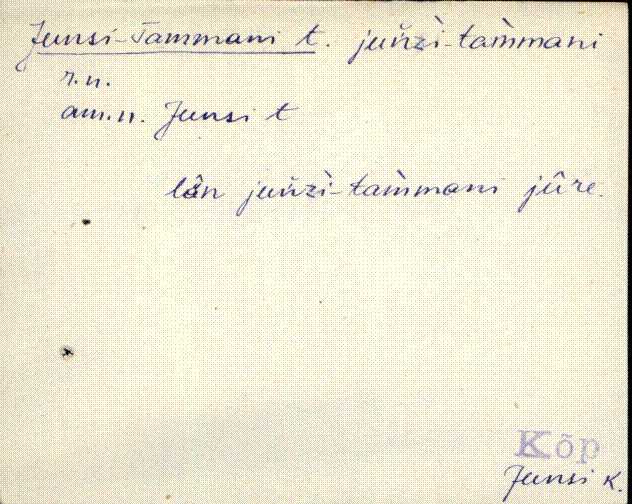 Junsi-Tammani t. juǹ̆zì-tam̀mani
r.n.
am.n. Junsi t
lân juǹ̆zì-tam̀mani jûre.
Kõp
Junsi k.